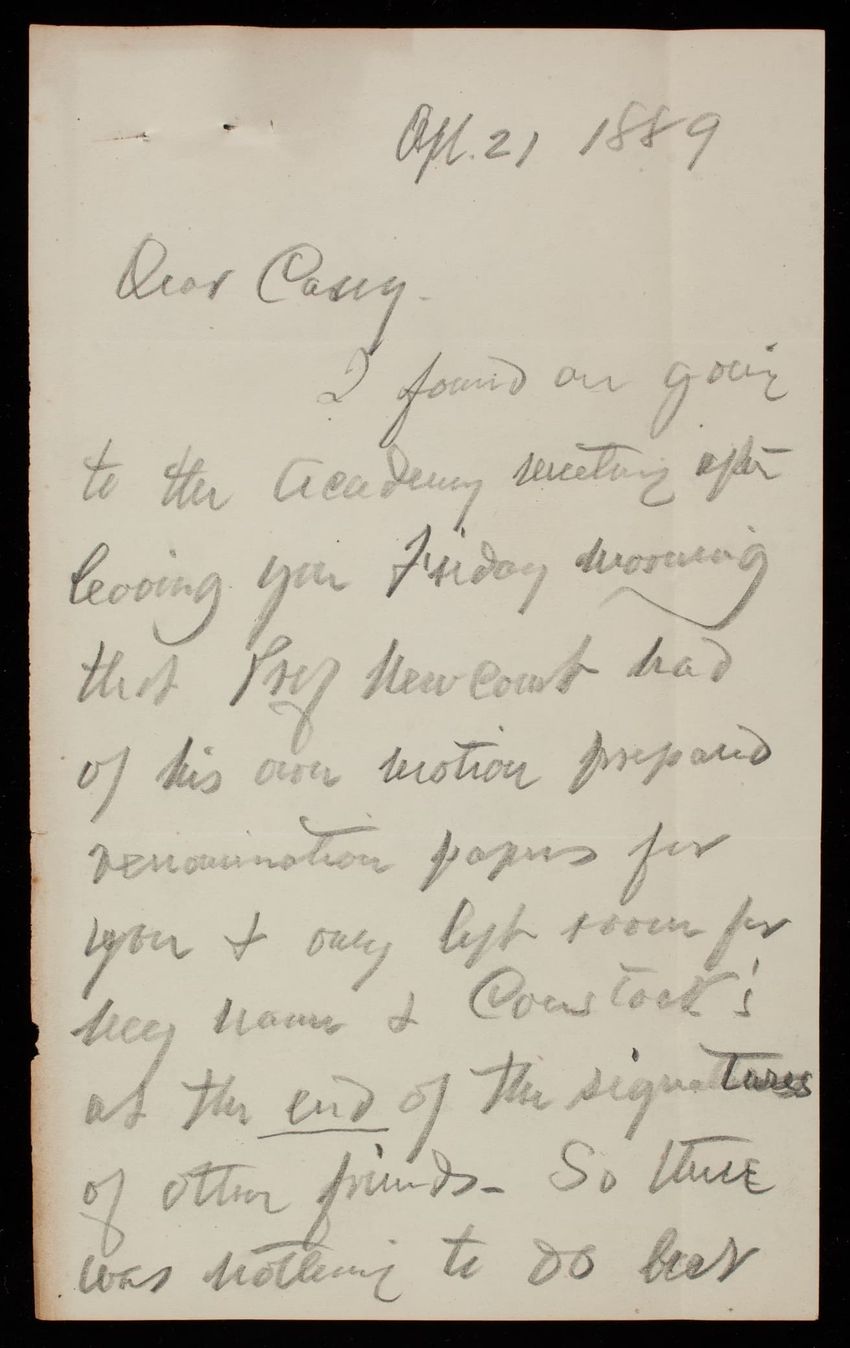 Apl. 21 1889
Dear Casey.
I found on going
to the Academy meeting after
leaving you Friday morning
that Prof Newcomb had
of his own motion prepared
renomination papers for
you & only left room for
my name & Comstock's
at the end of the signatures
of other friends - So there
was nothing to do but